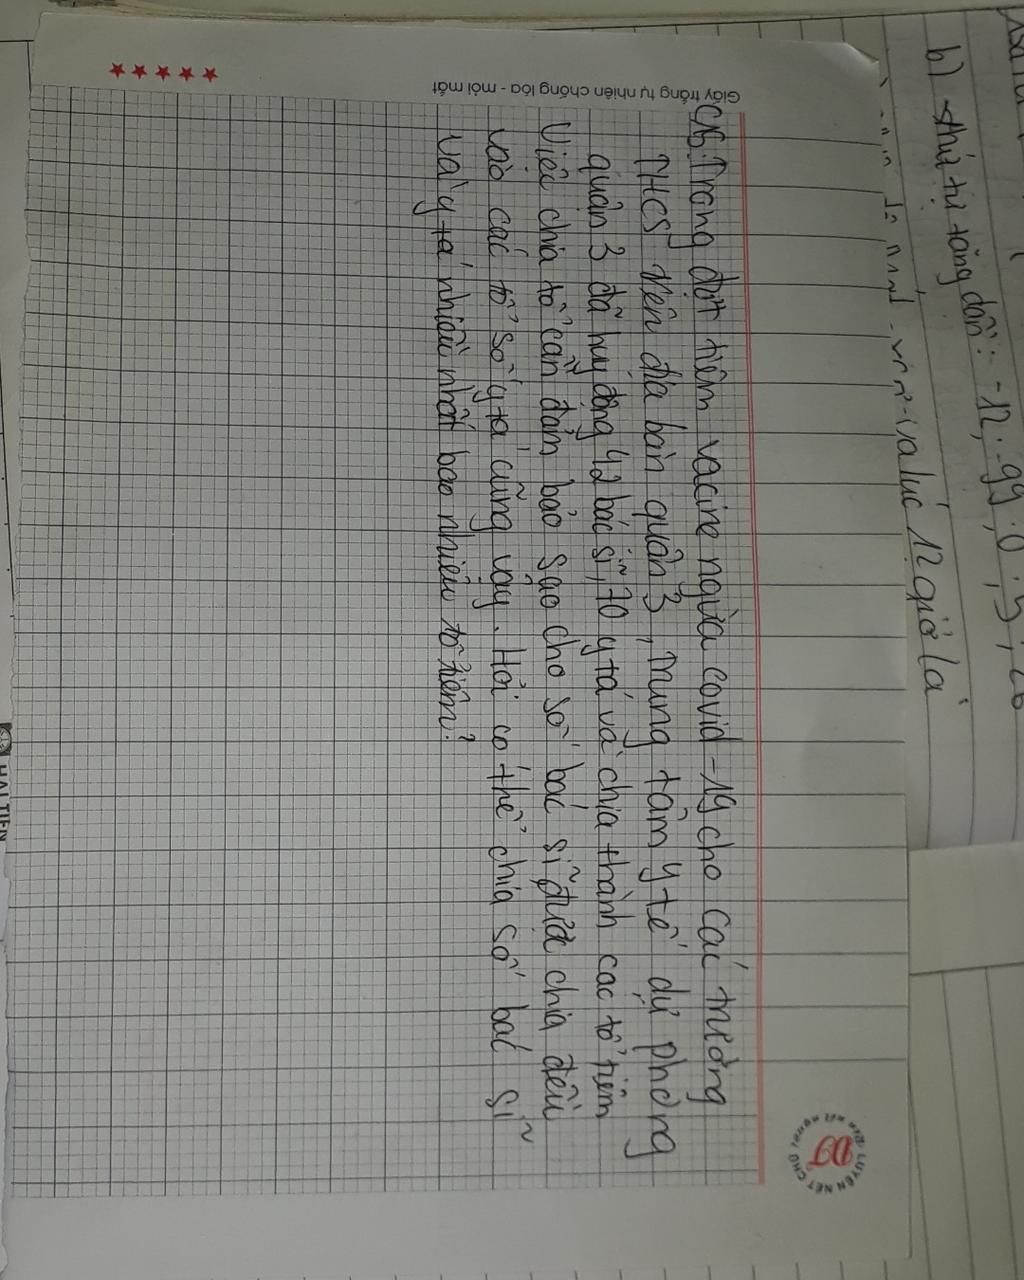 b) thứ tự tăng dần: -12; -99; 0; 5; 26
lúc 12 giờ là
Giấy trắng tự nhiên chống lóa - mỏi mắt
LUYỆN NÉT CHỮ
C5: Trong đợt tiêm vacine ngừa covid-19 cho các trường
THCS trên địa bàn quân 3, trung tâm y tế dự phòng
quân 3 đã huy động 42 bác sĩ, 70 y tá và chia thành các tổ tiêm
Việc chia tổ cần đảm bảo sao cho số bác sĩ được chia đều
vào các tổ số y tá cũng vậy. Hỏi có thể chia số bác sĩ
và y tá nhiều nhất bao nhiêu tổ tiêm?
HẢI TIẾN